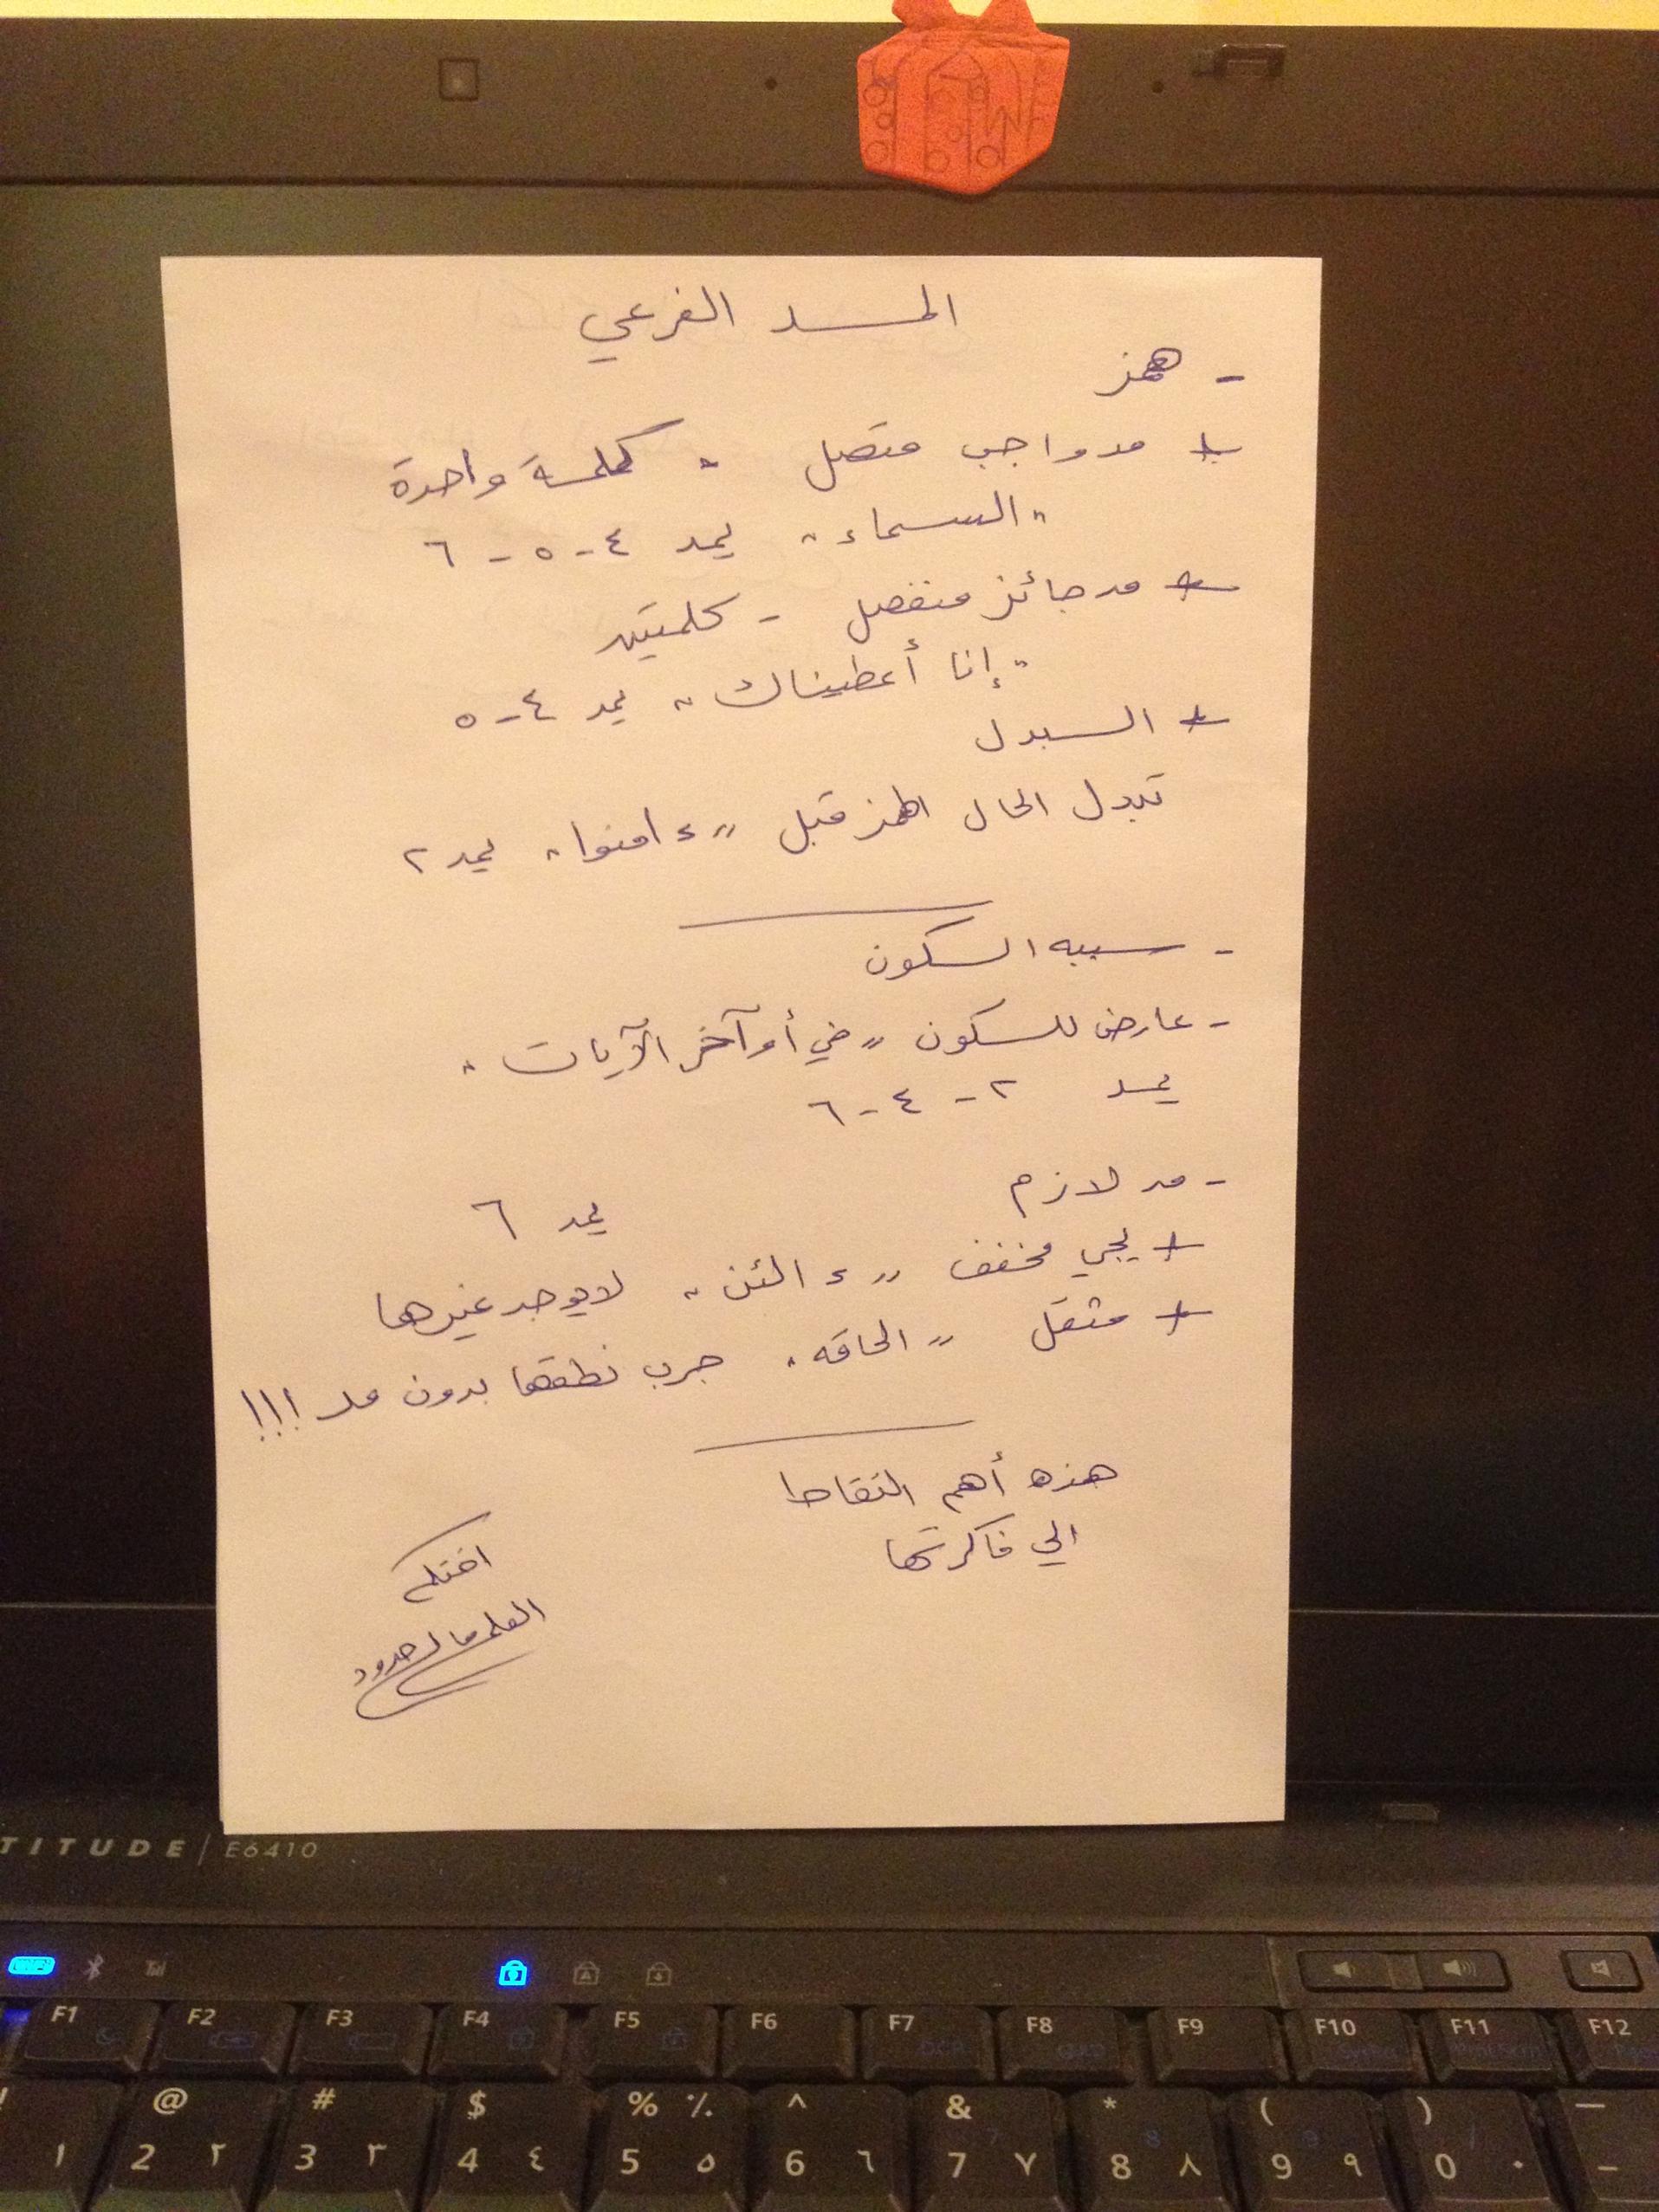 المد الفرعي
- همز
* مد واجب متصل " كلمة واحدة
" السماء " يمد ٤ - ٥ - ٦
* مد جائز منفصل - كلمتين
" إنا أعطيناك " يمد ٤ - ٥
* البدل
تبدل الحال الهمز قبل " ءامنوا " يمد ٢
- سببه السكون
- عارض للسكون " في أوآخر الآيات "
يمد ٢ - ٤ - ٦
- مد لازم يمد ٦
* يجي مخفف " ءالئن " لا يوجد غيرها
* مثقل " الحاقه " جرب نطقها بدون مد !!!
هذه أهم النقاط
الي فاكرتها
اختكم
العلم مالحدود
TITUDE | E6410
F1 F2 F3 F4 F5 F6 F7 F8 F9 F10 F11 F12
! @ # $ % ٪ ^ & * ( ) —
١ 2 ٢ 3 ٣ 4 ٤ 5 ٥ 6 ٦ 7 ٧ 8 ٨ 9 ٩ 0 ٠ -